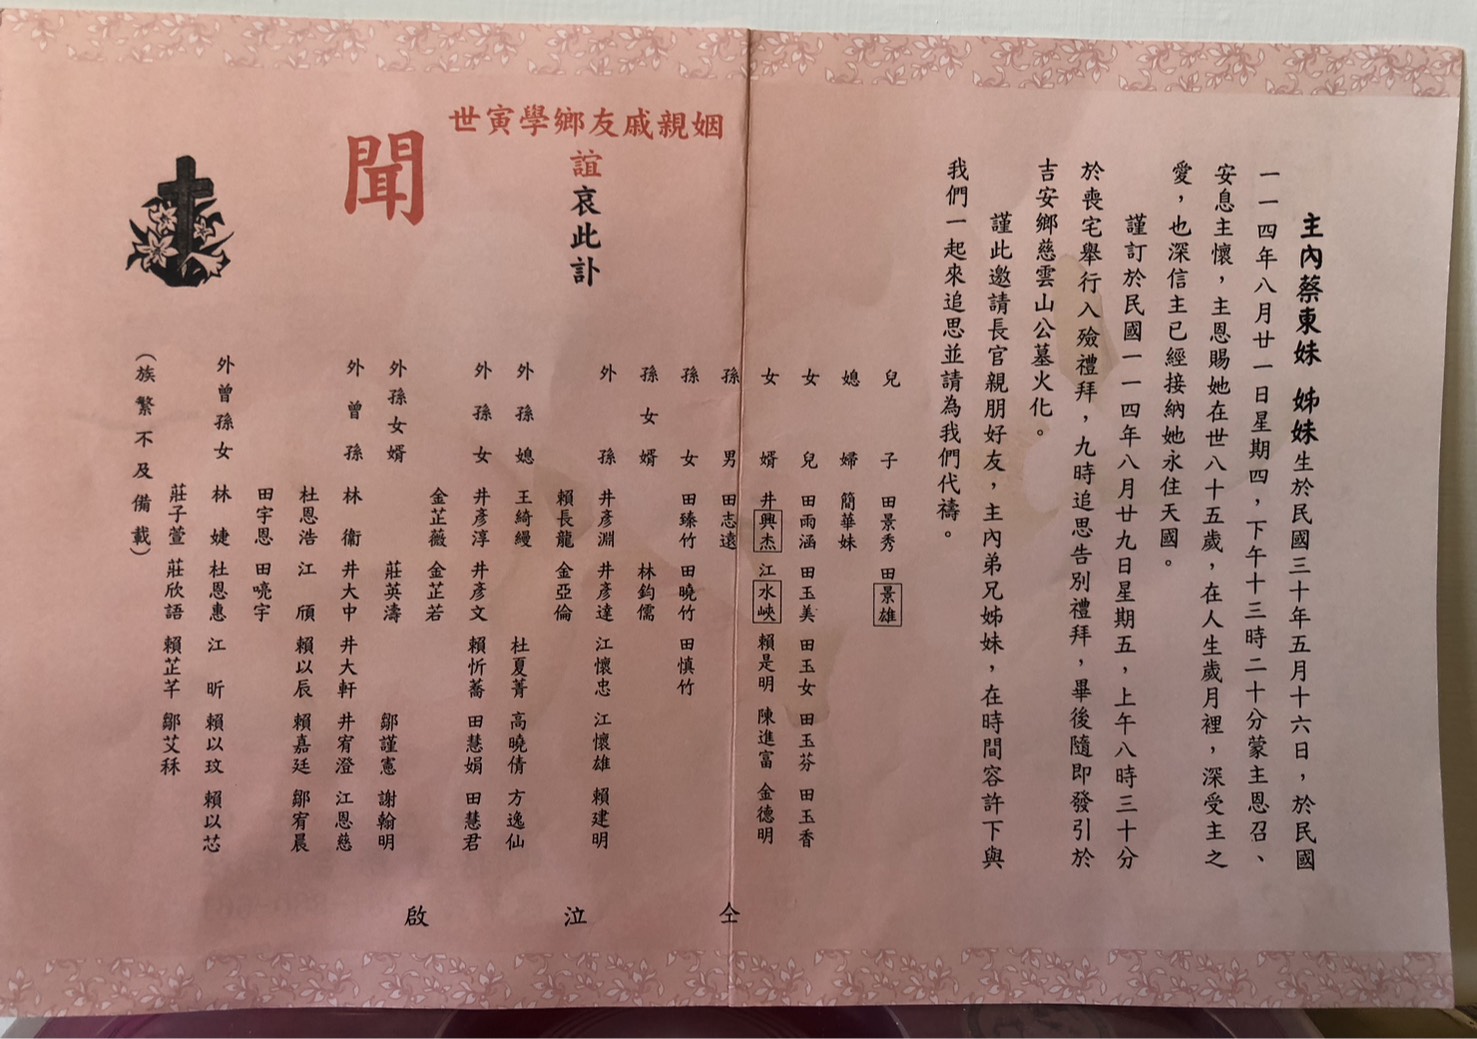 主內蔡東妹 姊妹生於民國三十年五月十六日，於民國
一一四年八月廿一日星期四，下午十三時二十分蒙主恩召、
安息主懷，主恩賜她在世八十五歲，在人生歲月裡，深受主之
愛，也深信主已經接納她永住天國。
謹訂於民國一一四年八月廿九日星期五，上午八時三十分
於喪宅舉行入殮禮拜，九時追思告別禮拜，畢後隨即發引於
吉安鄉慈雲山公墓火化。
謹此邀請長官親朋好友，主內弟兄姊妹，在時間容許下與
我們一起來追思並請為我們代禱。
兒子 田景秀 田景雄
媳婦 簡華妹
女兒 田雨涵 田玉美 田玉女 田玉芬 田玉香
女婿 井興杰 江水峽 賴是明 陳進富 金德明
孫男 田志遠
孫女 田臻竹 田曉竹 田慎竹
孫女婿 林鈞儒
外孫 井彥淵 井彥達 江懷忠 江懷雄 賴建明
賴長龍 金亞倫
外孫媳 王綺縵 杜夏菁 高曉倩 方逸仙
外孫女 井彥淳 井彥文 賴忻蕎 田慧娟 田慧君
金芷薇 金芷若
外孫女婿 莊英濤 鄒謹憲 謝翰明
外曾孫 林衞 井大中 井大軒 井宥澄 江恩慈
杜恩浩 江頎 賴以辰 賴嘉廷 鄒宥晨
田宇恩 田喨宇
外曾孫女 林婕 杜恩惠 江昕 賴以玟 賴以芯
莊子萱 莊欣語 賴芷芊 鄒艾秝
（族繁不及備載）
仝泣啟
世寅學鄉友戚親姻
誼哀此訃
聞